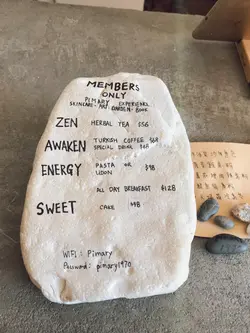 MEMBERS
ONLY
PIMARY EXPERIENCE
SKINCARE · ART · GARDEN · BOOK
ZEN HERBAL TEA $56
AWAKEN TURKISH COFFEE $68
SPECIAL DRINK $68
ENERGY PASTA OR $98
UDON
ALL DAY BREAKFAST $128
SWEET CAKE $48
WIFI : Pimary
Password : pimary1970